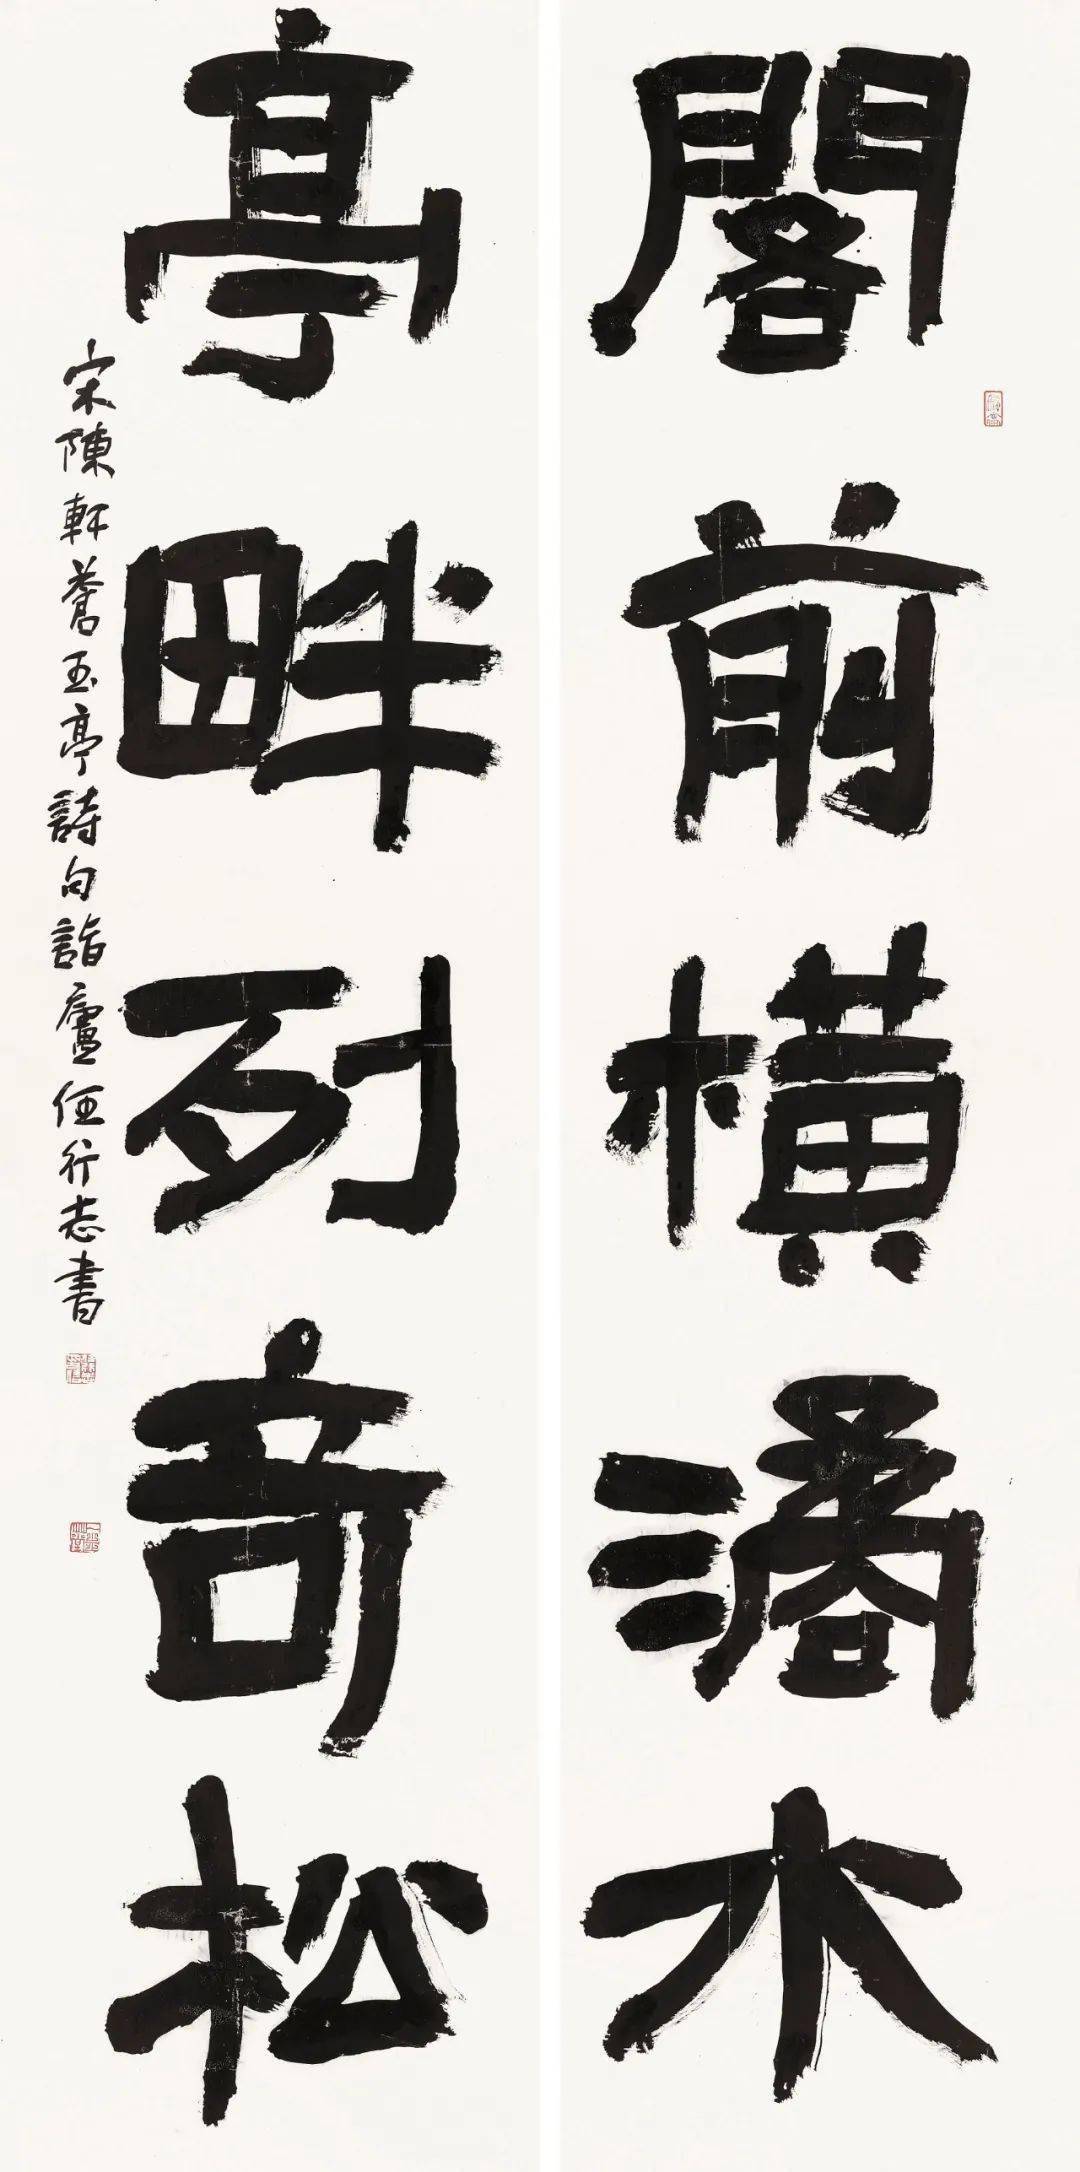 閣前横潏水
亭畔列奇松
宋陳軒蒼玉亭詩句詣廬任行志書